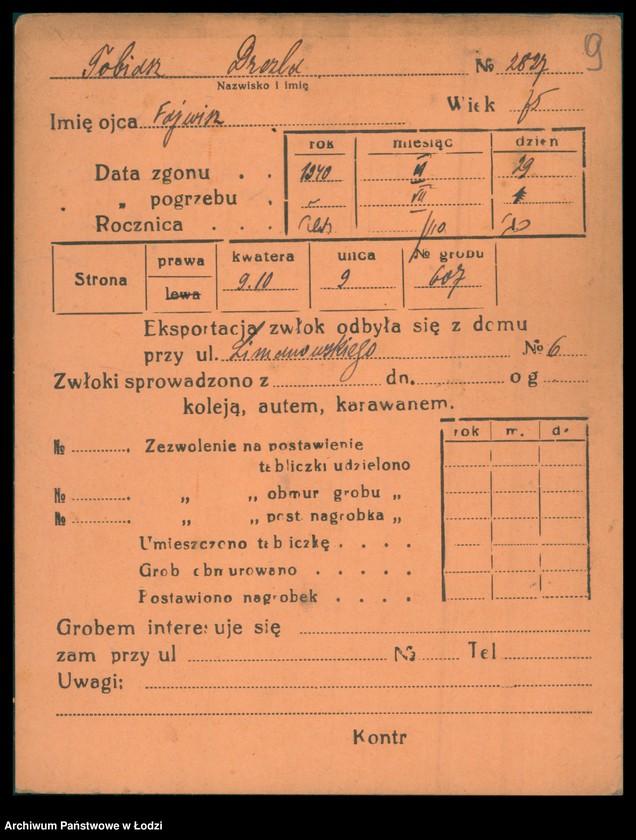 9
Tobiasz Drezla № 2827
Nazwisko i imię
Wiek 75
Imię ojca Fajwisz
rok miesiąc dzień
Data zgonu . . 1940 VI 29
„ pogrzebu . VII 1
Rocznica . . .
Strona prawa lewa kwatera 9.10 ulica 9 № grobu 607
Eksportacja zwłok odbyła się z domu
przy ul. Limanowskiego № 6
Zwłoki sprowadzono z dn. o g
koleją, autem, karawanem.
rok m. d.
№ Zezwolenie na postawienie
tabliczki udzielono
№ „ „ obmur grobu „
№ „ „ post. nagrobka „
Umieszczono tabliczkę . . . .
Grob obmurowano . . . . .
Postawiono nagrobek . . . .
Grobem interesuje się
zam przy ul № Tel
Uwagi:
Kontr
Archiwum Państwowe w Łodzi